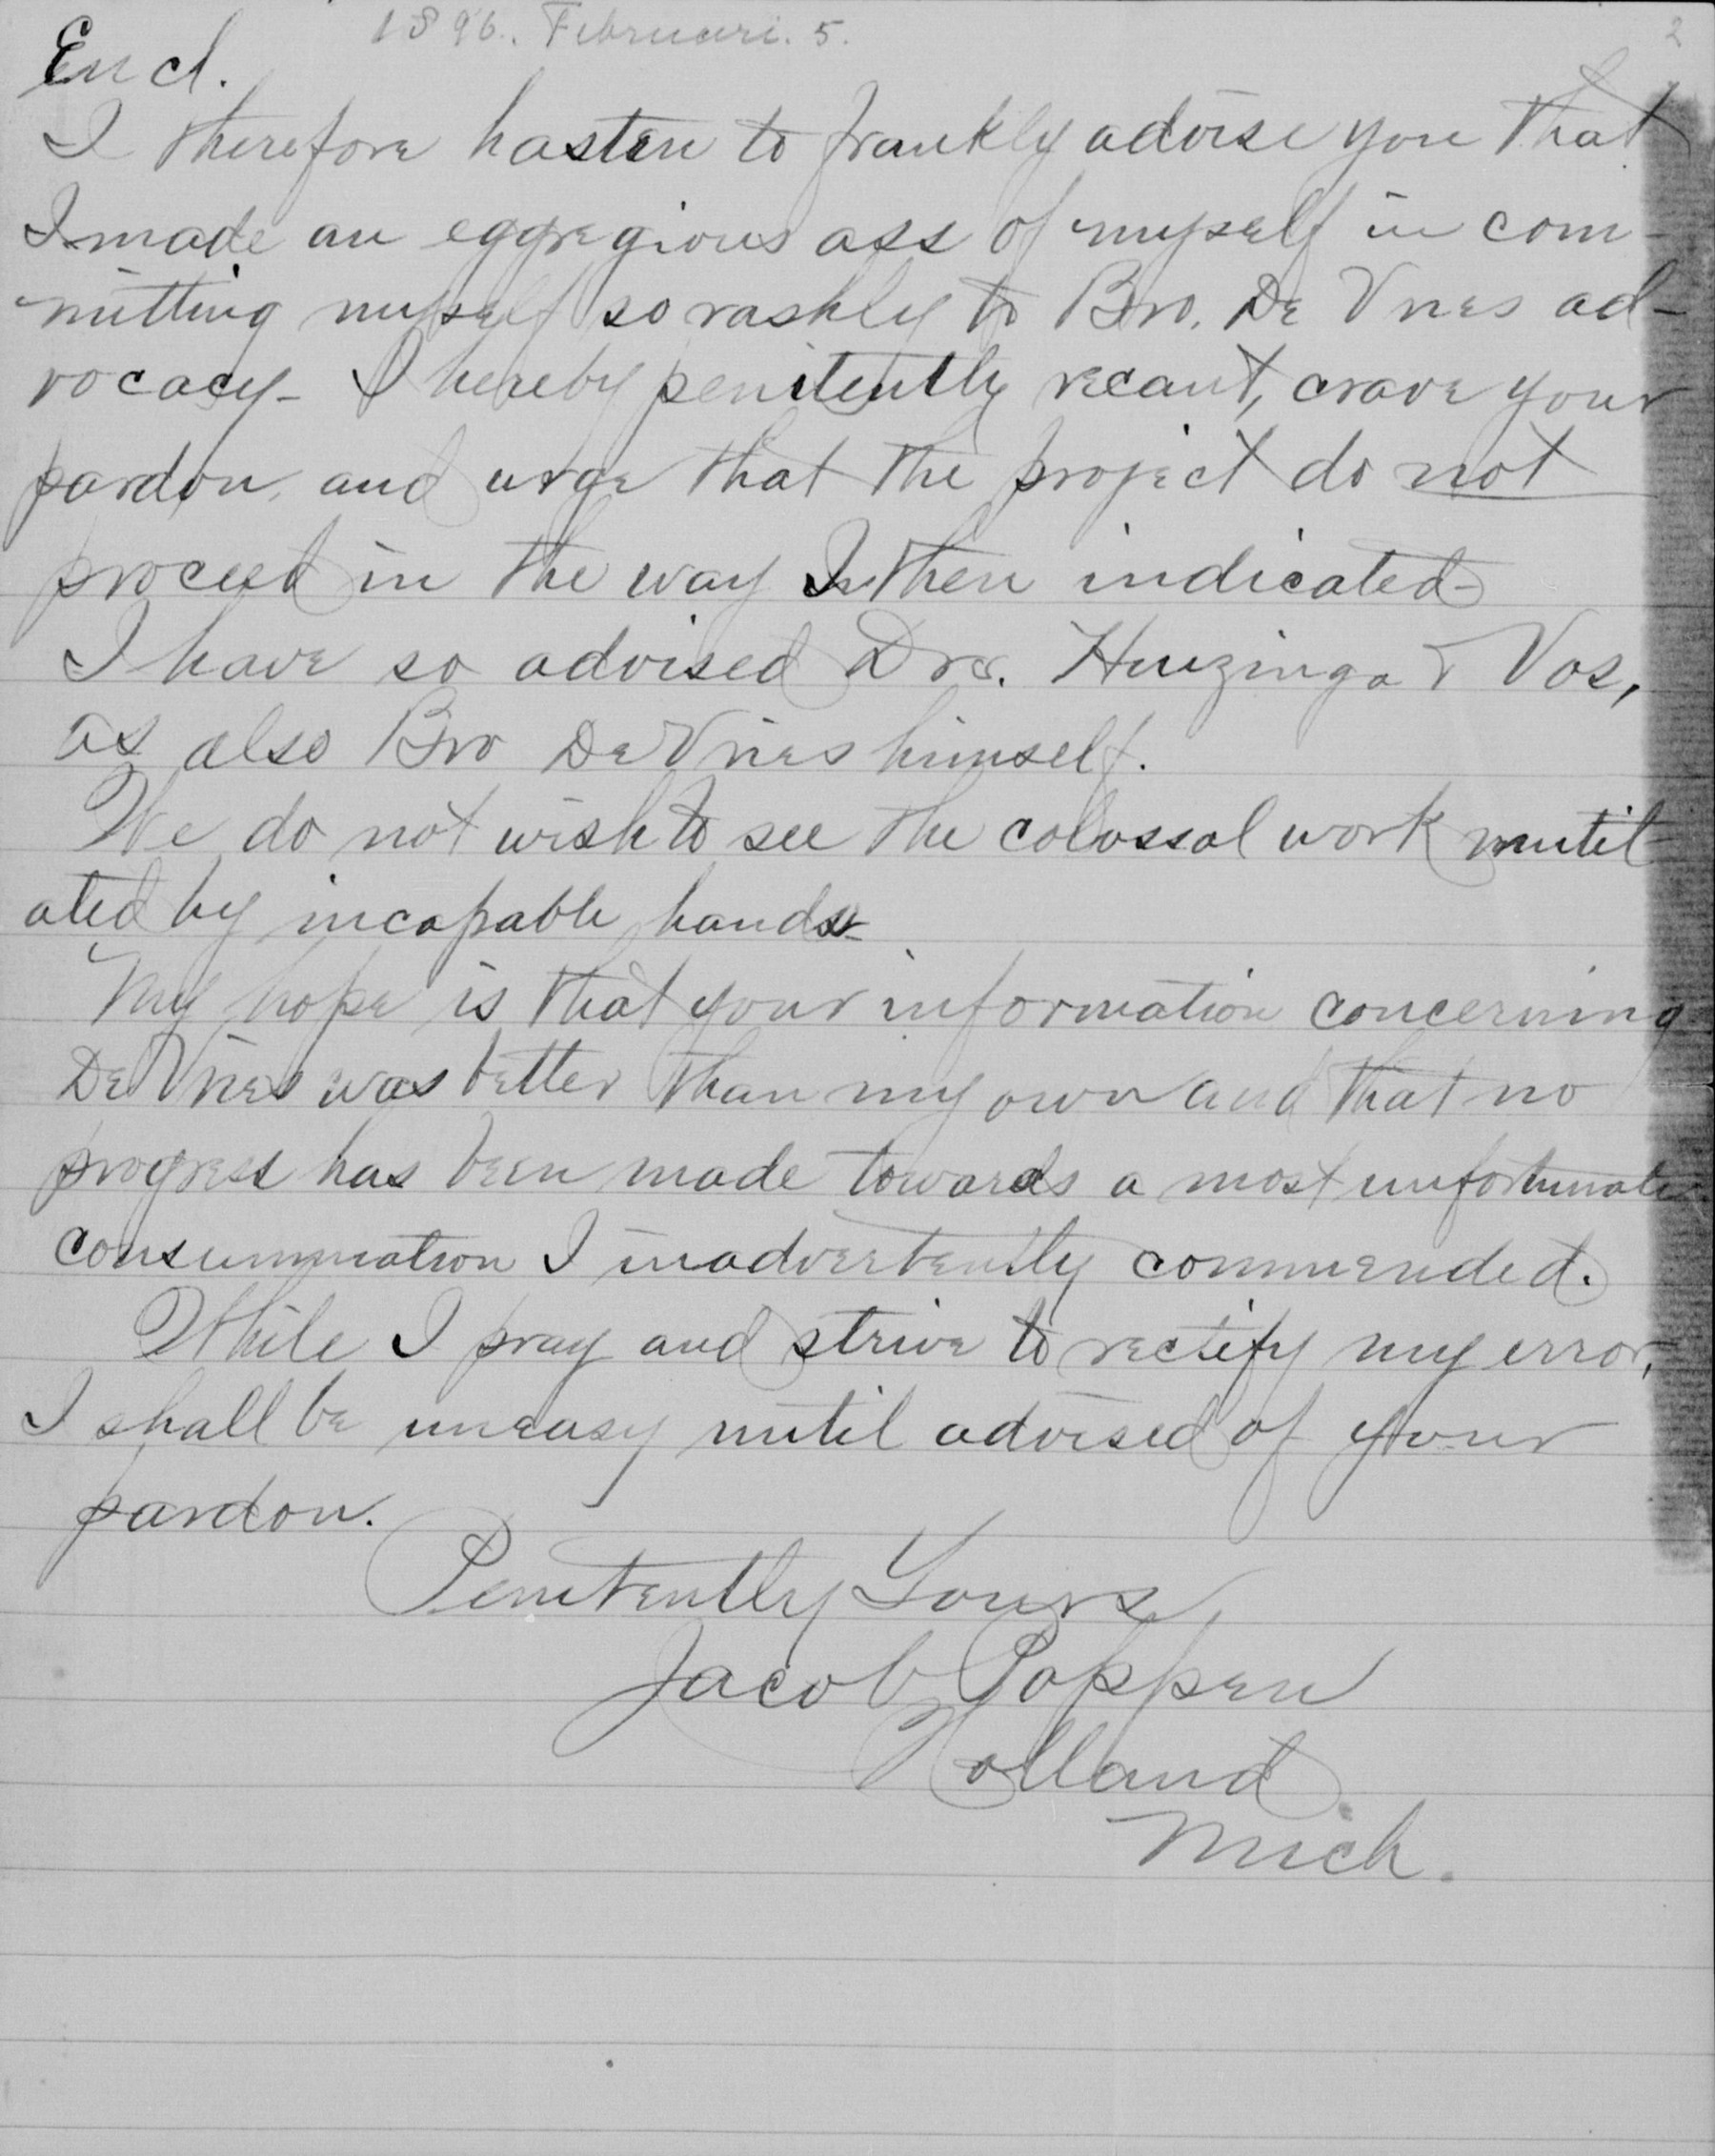 1896. Februari. 5.
2
Encl.
I therefore hasten to frankly advise you that
I made an eggregious ass of myself in com-
mitting myself so rashly to Bro. De Vries ad-
vocacy - I hereby penitently recant, crave your
pardon, and urge that the project do not
proceed in the way I then indicated -
I have so advised Drs. Huizinga & Vos,
as also Bro De Vries himself.
We do not wish to see the colossal work mutil
ated by incapable hands -
My hope is that your information concerning
De Vries was better than my own and that no
progress has been made towards a most unfortunate
consummation I inadvertently commended.
While I pray and strive to rectify my error,
I shall be uneasy until advised of your
pardon.
Penitently Yours,
Jacob Poppen
Holland
Mich.